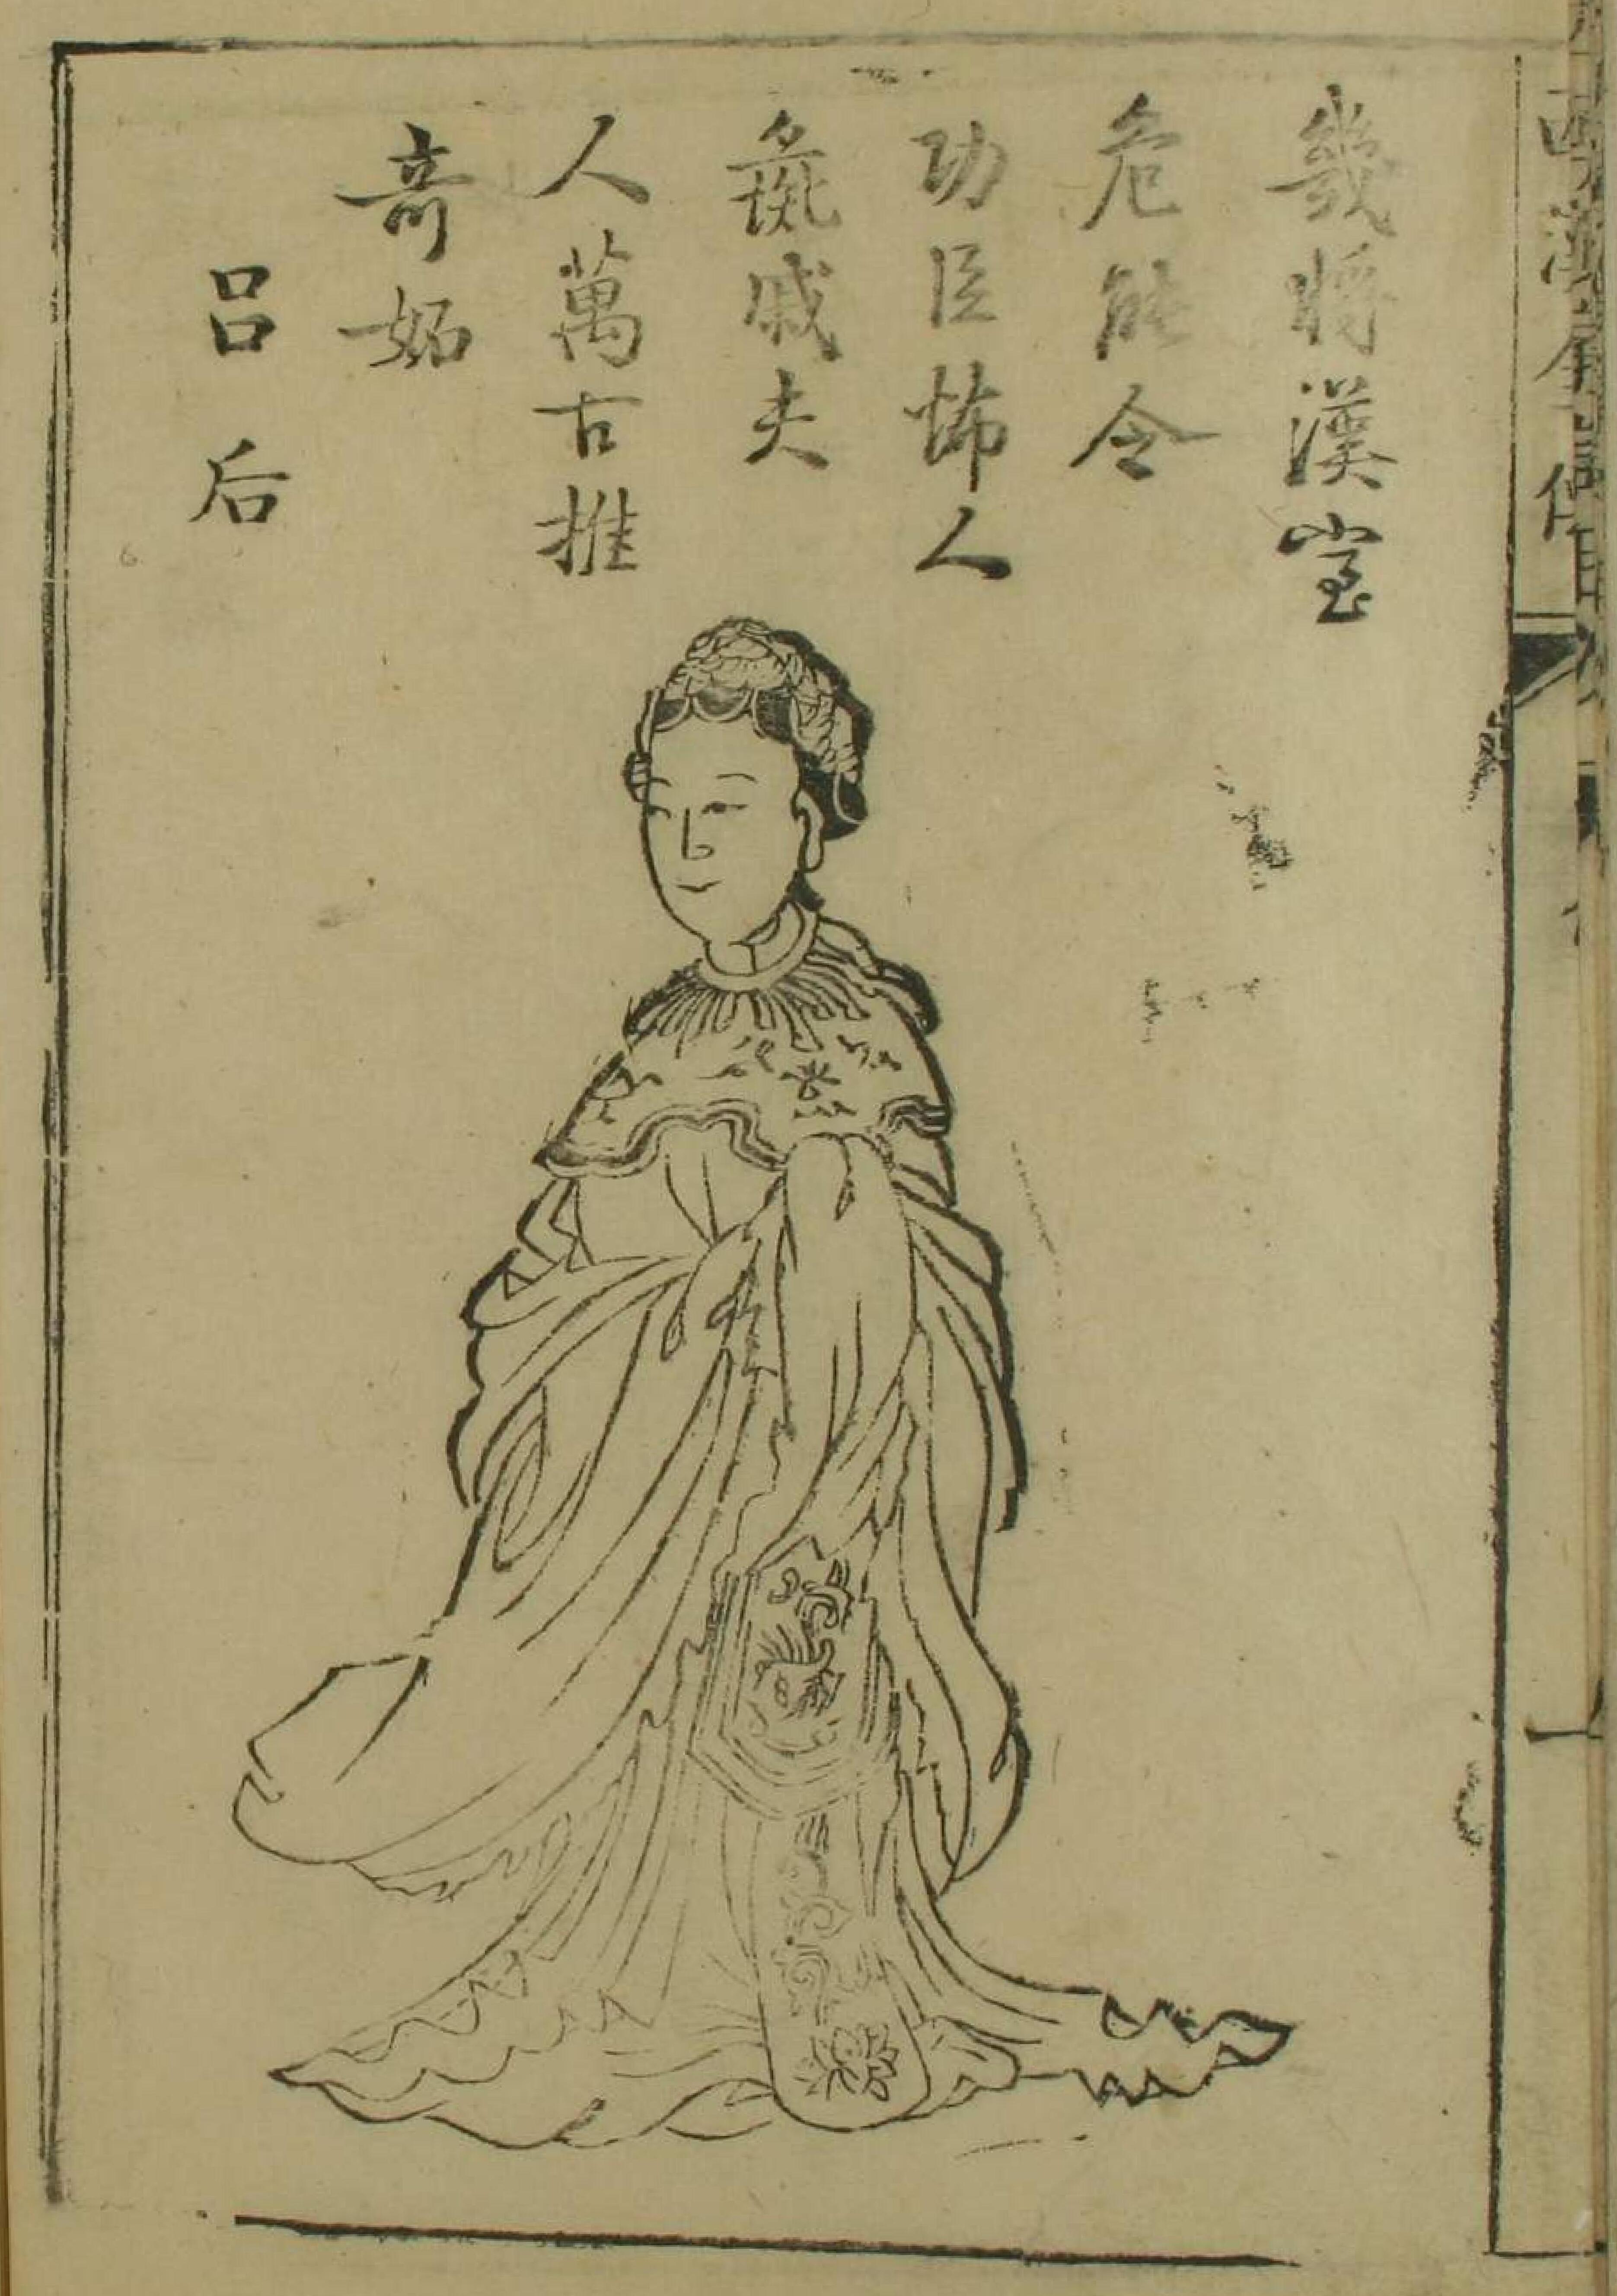 幾將漢室
危能令
功臣怖人
彘戚夫
人萬古推
奇妬
吕后